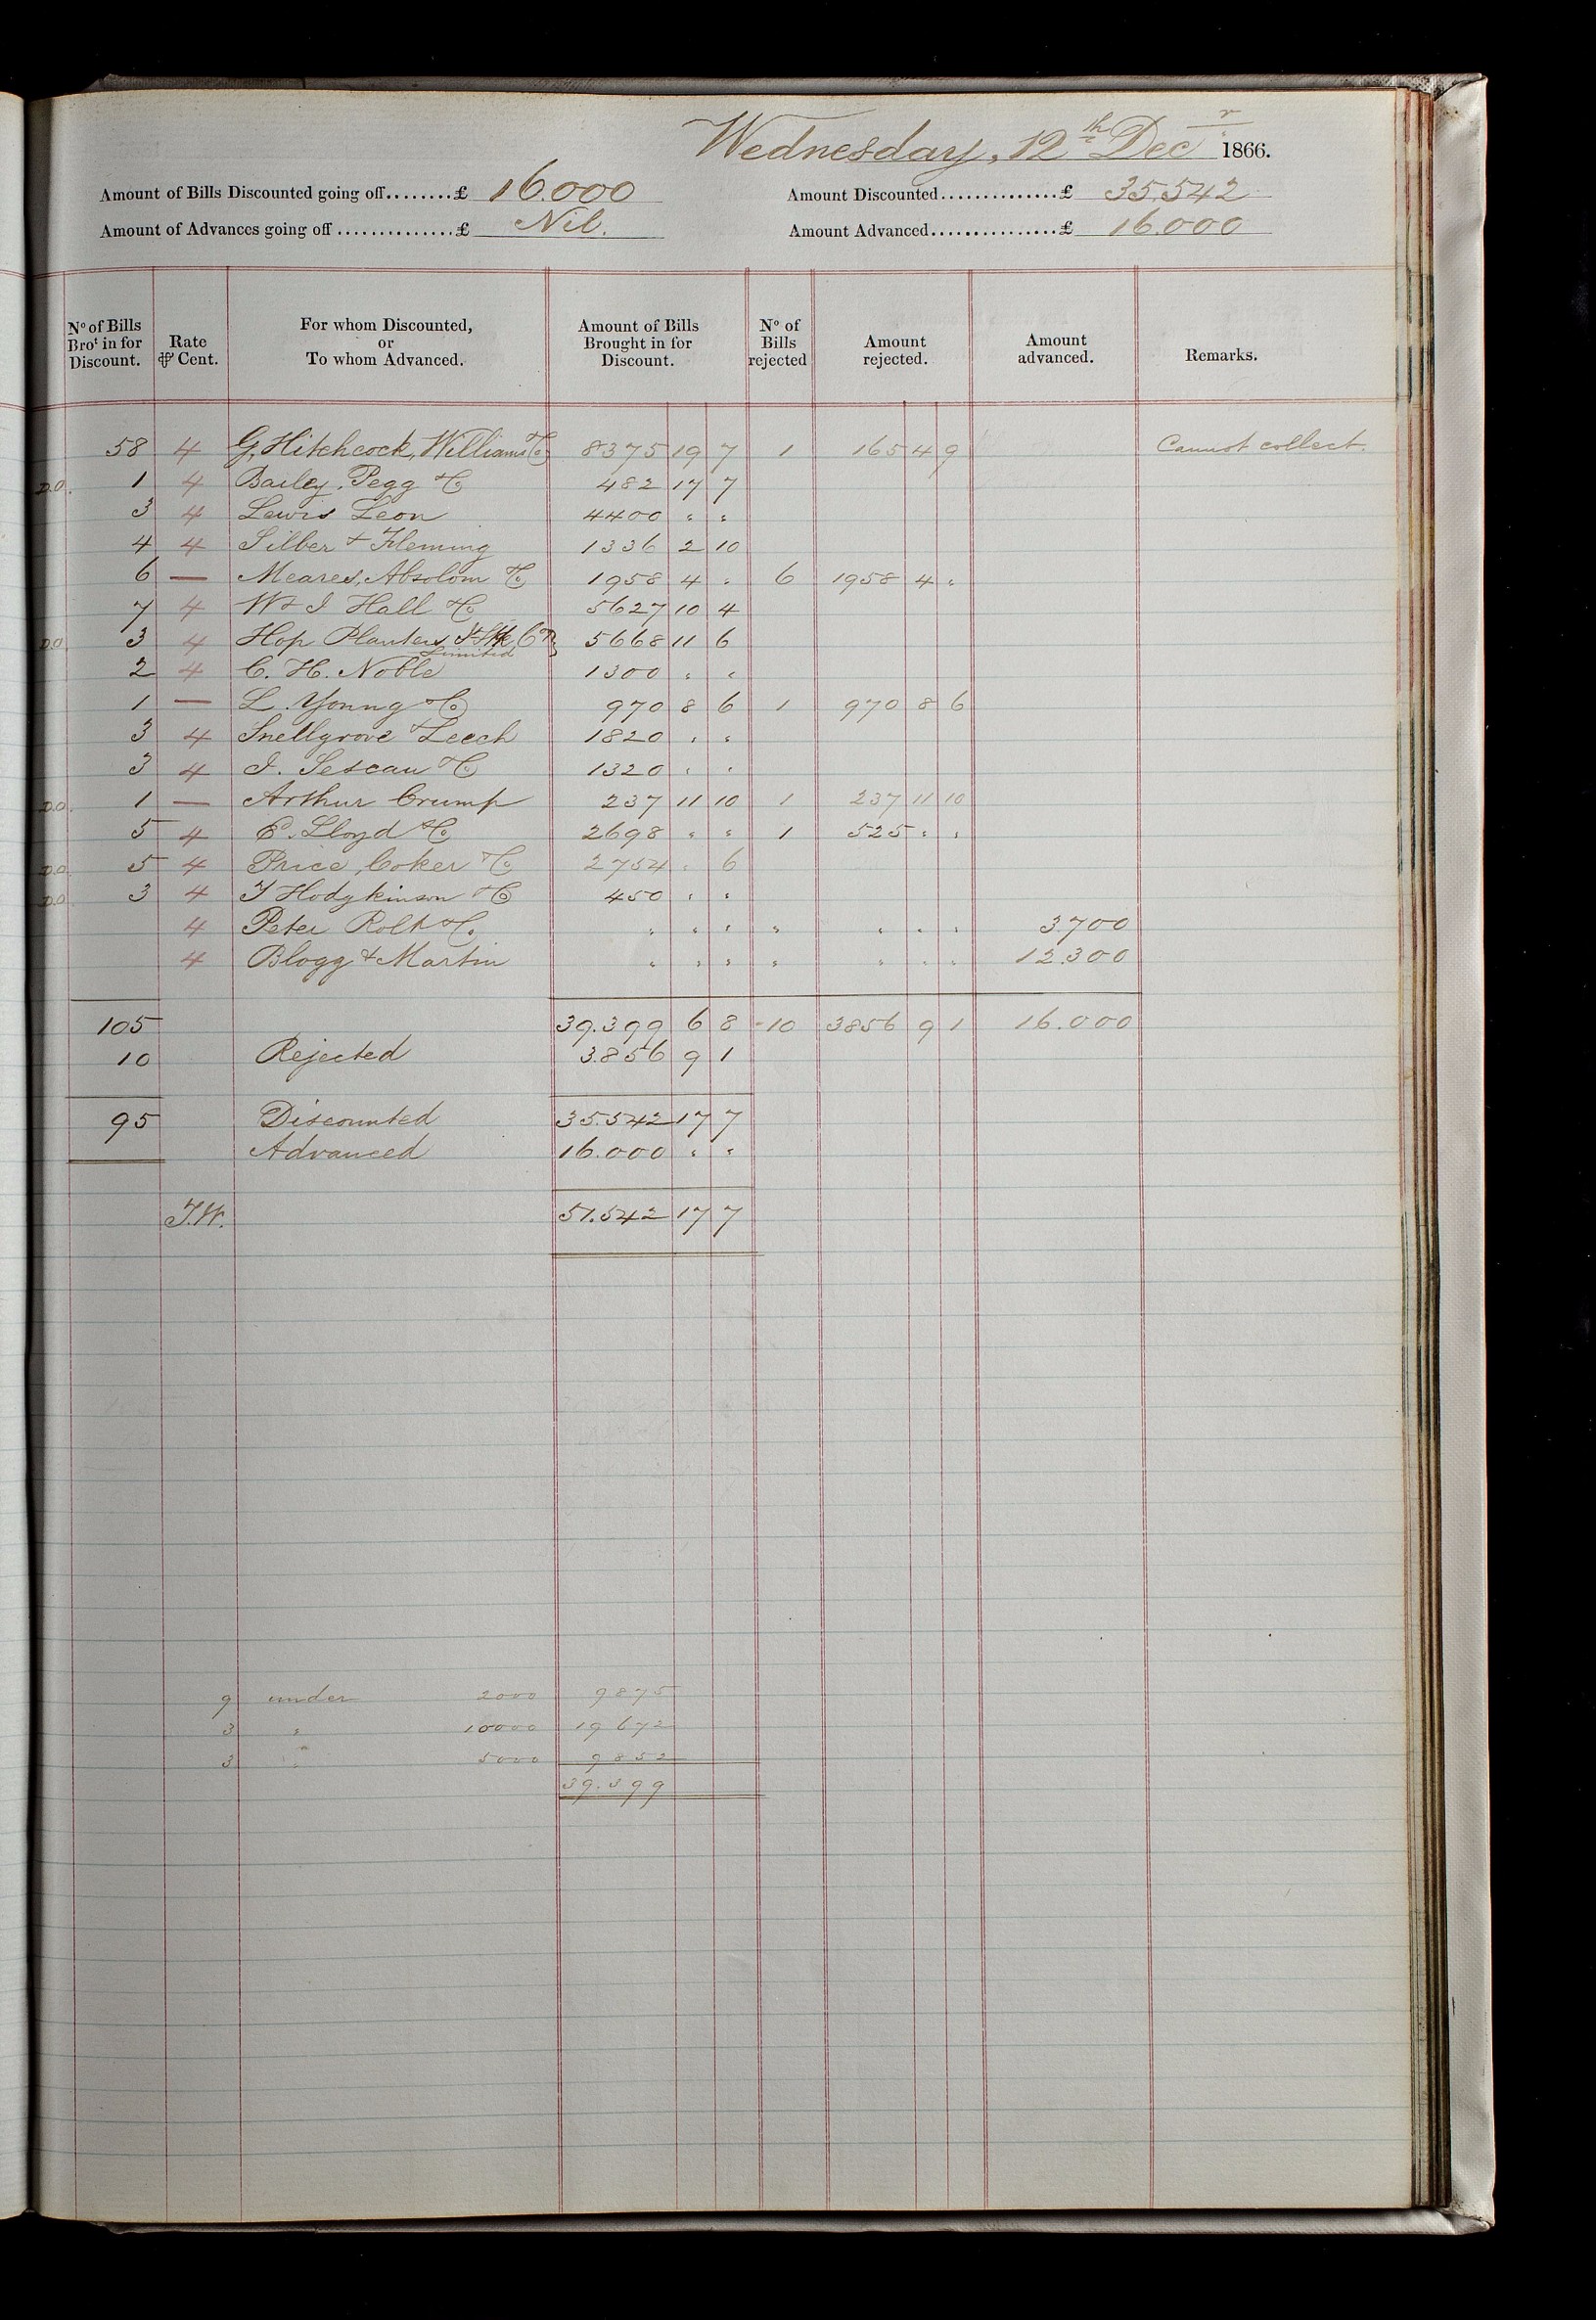 Wednesday, 12th Decr 1866.
Amount of Bills Discounted going off........£ 16.000 Amount Discounted...............£ 35.542
Amount of Advances going off...............£ Nil. Amount Advanced................£ 16.000
No of Bills Brot in for Discount. Rate ⅌ Cent. For whom Discounted, or To whom Advanced. Amount of Bills Brought in for Discount. No of Bills rejected Amount rejected. Amount advanced. Remarks.
58 4 G. Hitchcock, Williams &Co 8375 19 7 1 165 4 9 Cannot collect.
D.O. 1 4 Bailey, Pegg &Co 482 17 7
3 4 Lewis Leon 4400 " "
4 4 Silber & Fleming 1336 2 10
6 — Meares, Absolom &Co 1958 4 " 6 1958 4 "
7 4 W & I Hall &Co 5627 10 4
D.O. 3 4 Hop Planters Jt Stk Co 5668 11 6
Limited
2 4 C. H. Noble 1300 " "
1 — L. Young &Co 970 8 6 1 970 8 6
3 4 Snellgrove & Leech 1820 " "
3 4 I. Sescau &Co 1320 " "
D.O. 1 — Arthur Crump 237 11 10 1 237 11 10
5 4 E. Lloyd &Co 2698 " " 1 525 " "
D.O. 5 4 Price, Coker &Co 2754 " 6
D.O. 3 4 T Hodgkinson &Co 450 " "
4 Peter Rolt &Co " " " " " " " 3.700
4 Blogg & Martin " " " " " " " 12.300
105 39.399 6 8 10 3856 9 1 16.000
10 Rejected 3.856 9 1
95 Discounted 35.542 17 7
Advanced 16.000 " "
J.W. 51.542 17 7
9 under 2000 9875
3 " 10000 19672
3 " 5000 9852
39.399